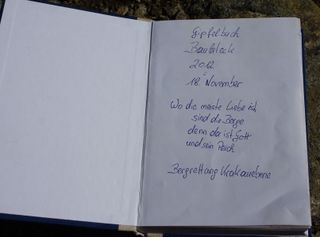 Gipfelbuch
2012
18. November
Wo die meiste Liebe ist
sind die Berge
denn da ist Gott
und sein Reich
Bergrettung Krakauebene